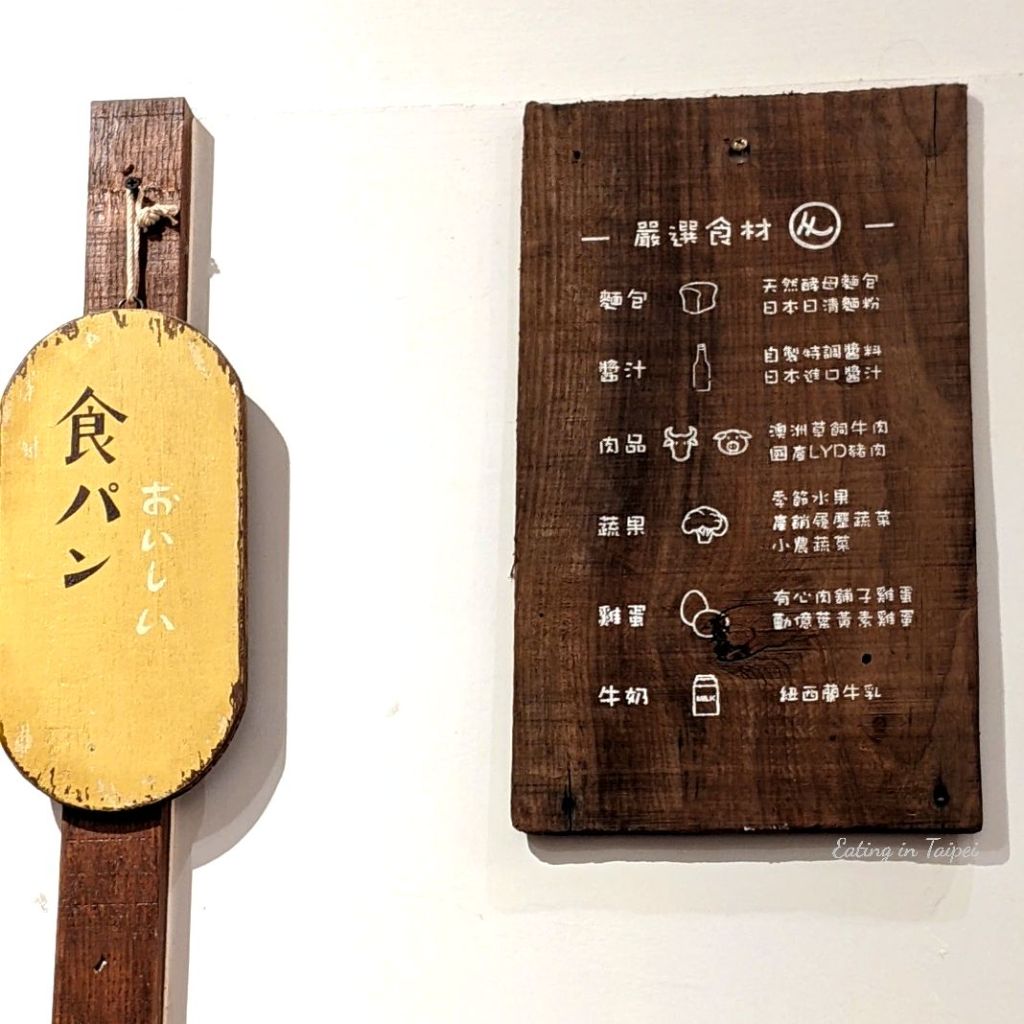 食パン
おいしい
嚴選食材
麵包
天然酵母麵包
日本日清麵粉
醬汁
自製特調醬料
日本進口醬汁
肉品
澳洲草飼牛肉
國產LYD豬肉
蔬果
季節水果
產銷履歷蔬菜
小農蔬菜
雞蛋
有心肉舖子雞蛋
勤億葉黃素雞蛋
牛奶
MILK
紐西蘭牛乳
Eating in Taipei